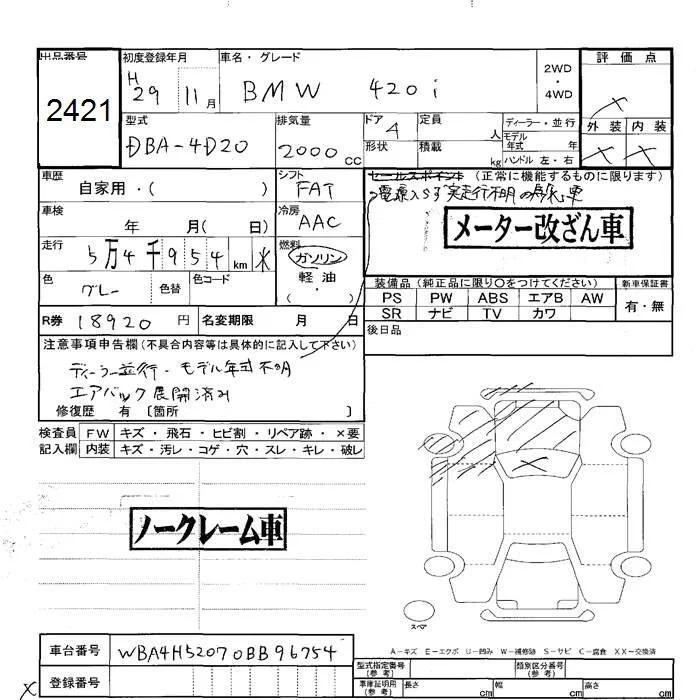 出品番号
2421
初度登録年月
H
29 11 月
車名・グレード
BMW 420i
2WD
・
4WD
評価点
×
外装 内装
× ×
型式
DBA-4D20
排気量
2000 CC
ドア
4
形状
定員 人
積載 kg
ディーラー・並行
モデル
年式 年
ハンドル 左・右
車歴
自家用・( )
シフト
FAT
セールスポイント (正常に機能するものに限ります)
実走行不明の為
メーター改ざん車
車検
年 月( 日)
冷房
AAC
走行
5万4千954 km ※
燃料
ガソリン
軽油
( ・ )
色
グレー
色替
色コード
装備品(純正品に限り○をつけてください)
新車保証書
PS PW ABS エアB AW
SR ナビ TV カワ
有・無
R券 18920 円
名変期限 月 日
後日品
注意事項申告欄(不具合内容等は具体的に記入して下さい)
ディーラー並行・モデル年式不明
エアバック展開済み
修復歴 有 〔箇所 〕
検査員 FW キズ・飛石・ヒビ割・リペア跡・×要
記入欄 内装 キズ・汚レ・コゲ・穴・スレ・キレ・破レ
×
ノークレーム車
スペア
A−キズ E−エクボ U−凹み W−補修跡 S−サビ C−腐食 XX−交換済
車台番号 WBA4H52070BB96754
登録番号
×
型式指定番号
(参考)
類別区分番号
(参考)
車庫証明用
(参考)
長さ cm
幅 cm
高さ cm